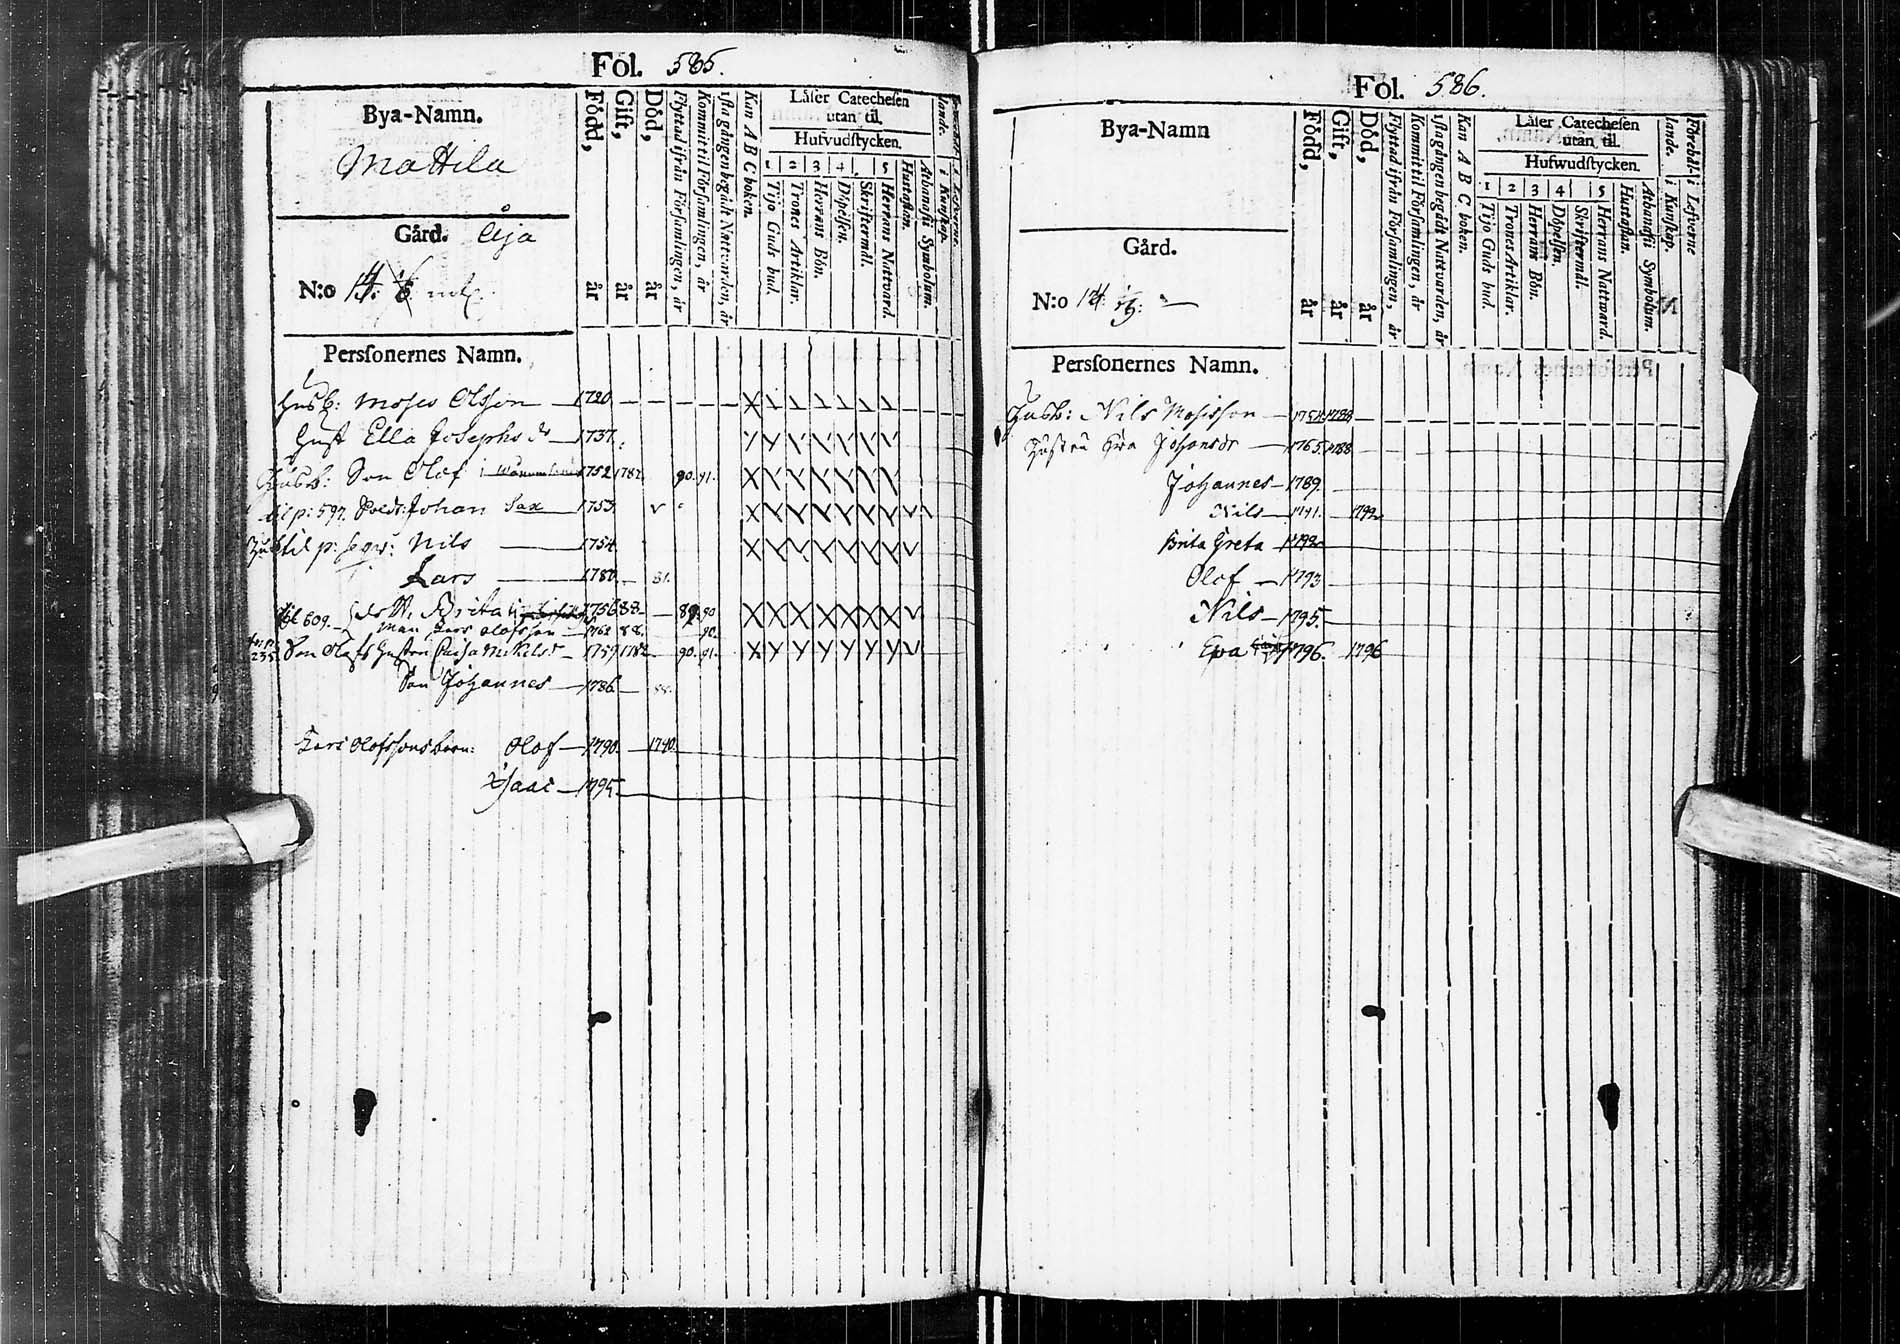 Föl. 585.
Bya-Namn.
Mattila
Gård. Åja
N:o 14.
Personernes Namn.
Född, år
Gift, år
Död, år
Flyttad ifrån Församlingen, år
Kommit til Församlingen, år
1sta gången begådt Nattvarden, år
Kan A B C boken.
Läser Catechesen
utan til.
Hufvudstycken.
1 2 3 4 5
Tijo Guds bud.
Trones Artiklar.
Herrans Bön.
Döpelsen.
Skriftermål.
Herrans Nattvard.
Hustaflan.
Athanasii Symbolum.
i Kunskap.
Husb: Moses Olsson 1720
Hust Ella Josephs dr 1737.
Husb: Son Olof i 1752 1782. 90. 91.
til p: 597. Sold: Johan Sax 1753.
til p: seqv: Nils 1754
Lars 1780. 81.
til 609. Brita 1756 88
Man Lars Olofsson 1762 88. 90.
235. Son Olofs hustru Caisa Nilsdr 1759 1782 90. 91.
Son Johannes 1786 88.
Lars Olofssons barn: Olof 1790. 1790.
Isaac 1795.
Föl. 586.
Bya-Namn
Gård.
N:o 14.
Personernes Namn.
Född, år
Gift, år
Död, år
Flyttad ifrån Församlingen, år
Kommit til Församlingen, år
1sta gången begådt Nattvarden, år
Kan A B C boken.
Läser Catechesen
utan til.
Hufwudstycken.
1 2 3 4 5
Tijo Guds bud.
Trones Artiklar.
Herrans Bön.
Döpelsen.
Skriftermål.
Herrans Nattvard.
Hustaflan.
Athanasii Symbolum.
i Kunskap.
i Lefverne
Husb: Nils Mosisson 1754 1788
Hustru Johansdr 1765. 1788
Johannes 1789.
Nils 1791. 1792
Brita Greta 1792
Olof 1793
Nils 1795.
Ewa 1796. 1796